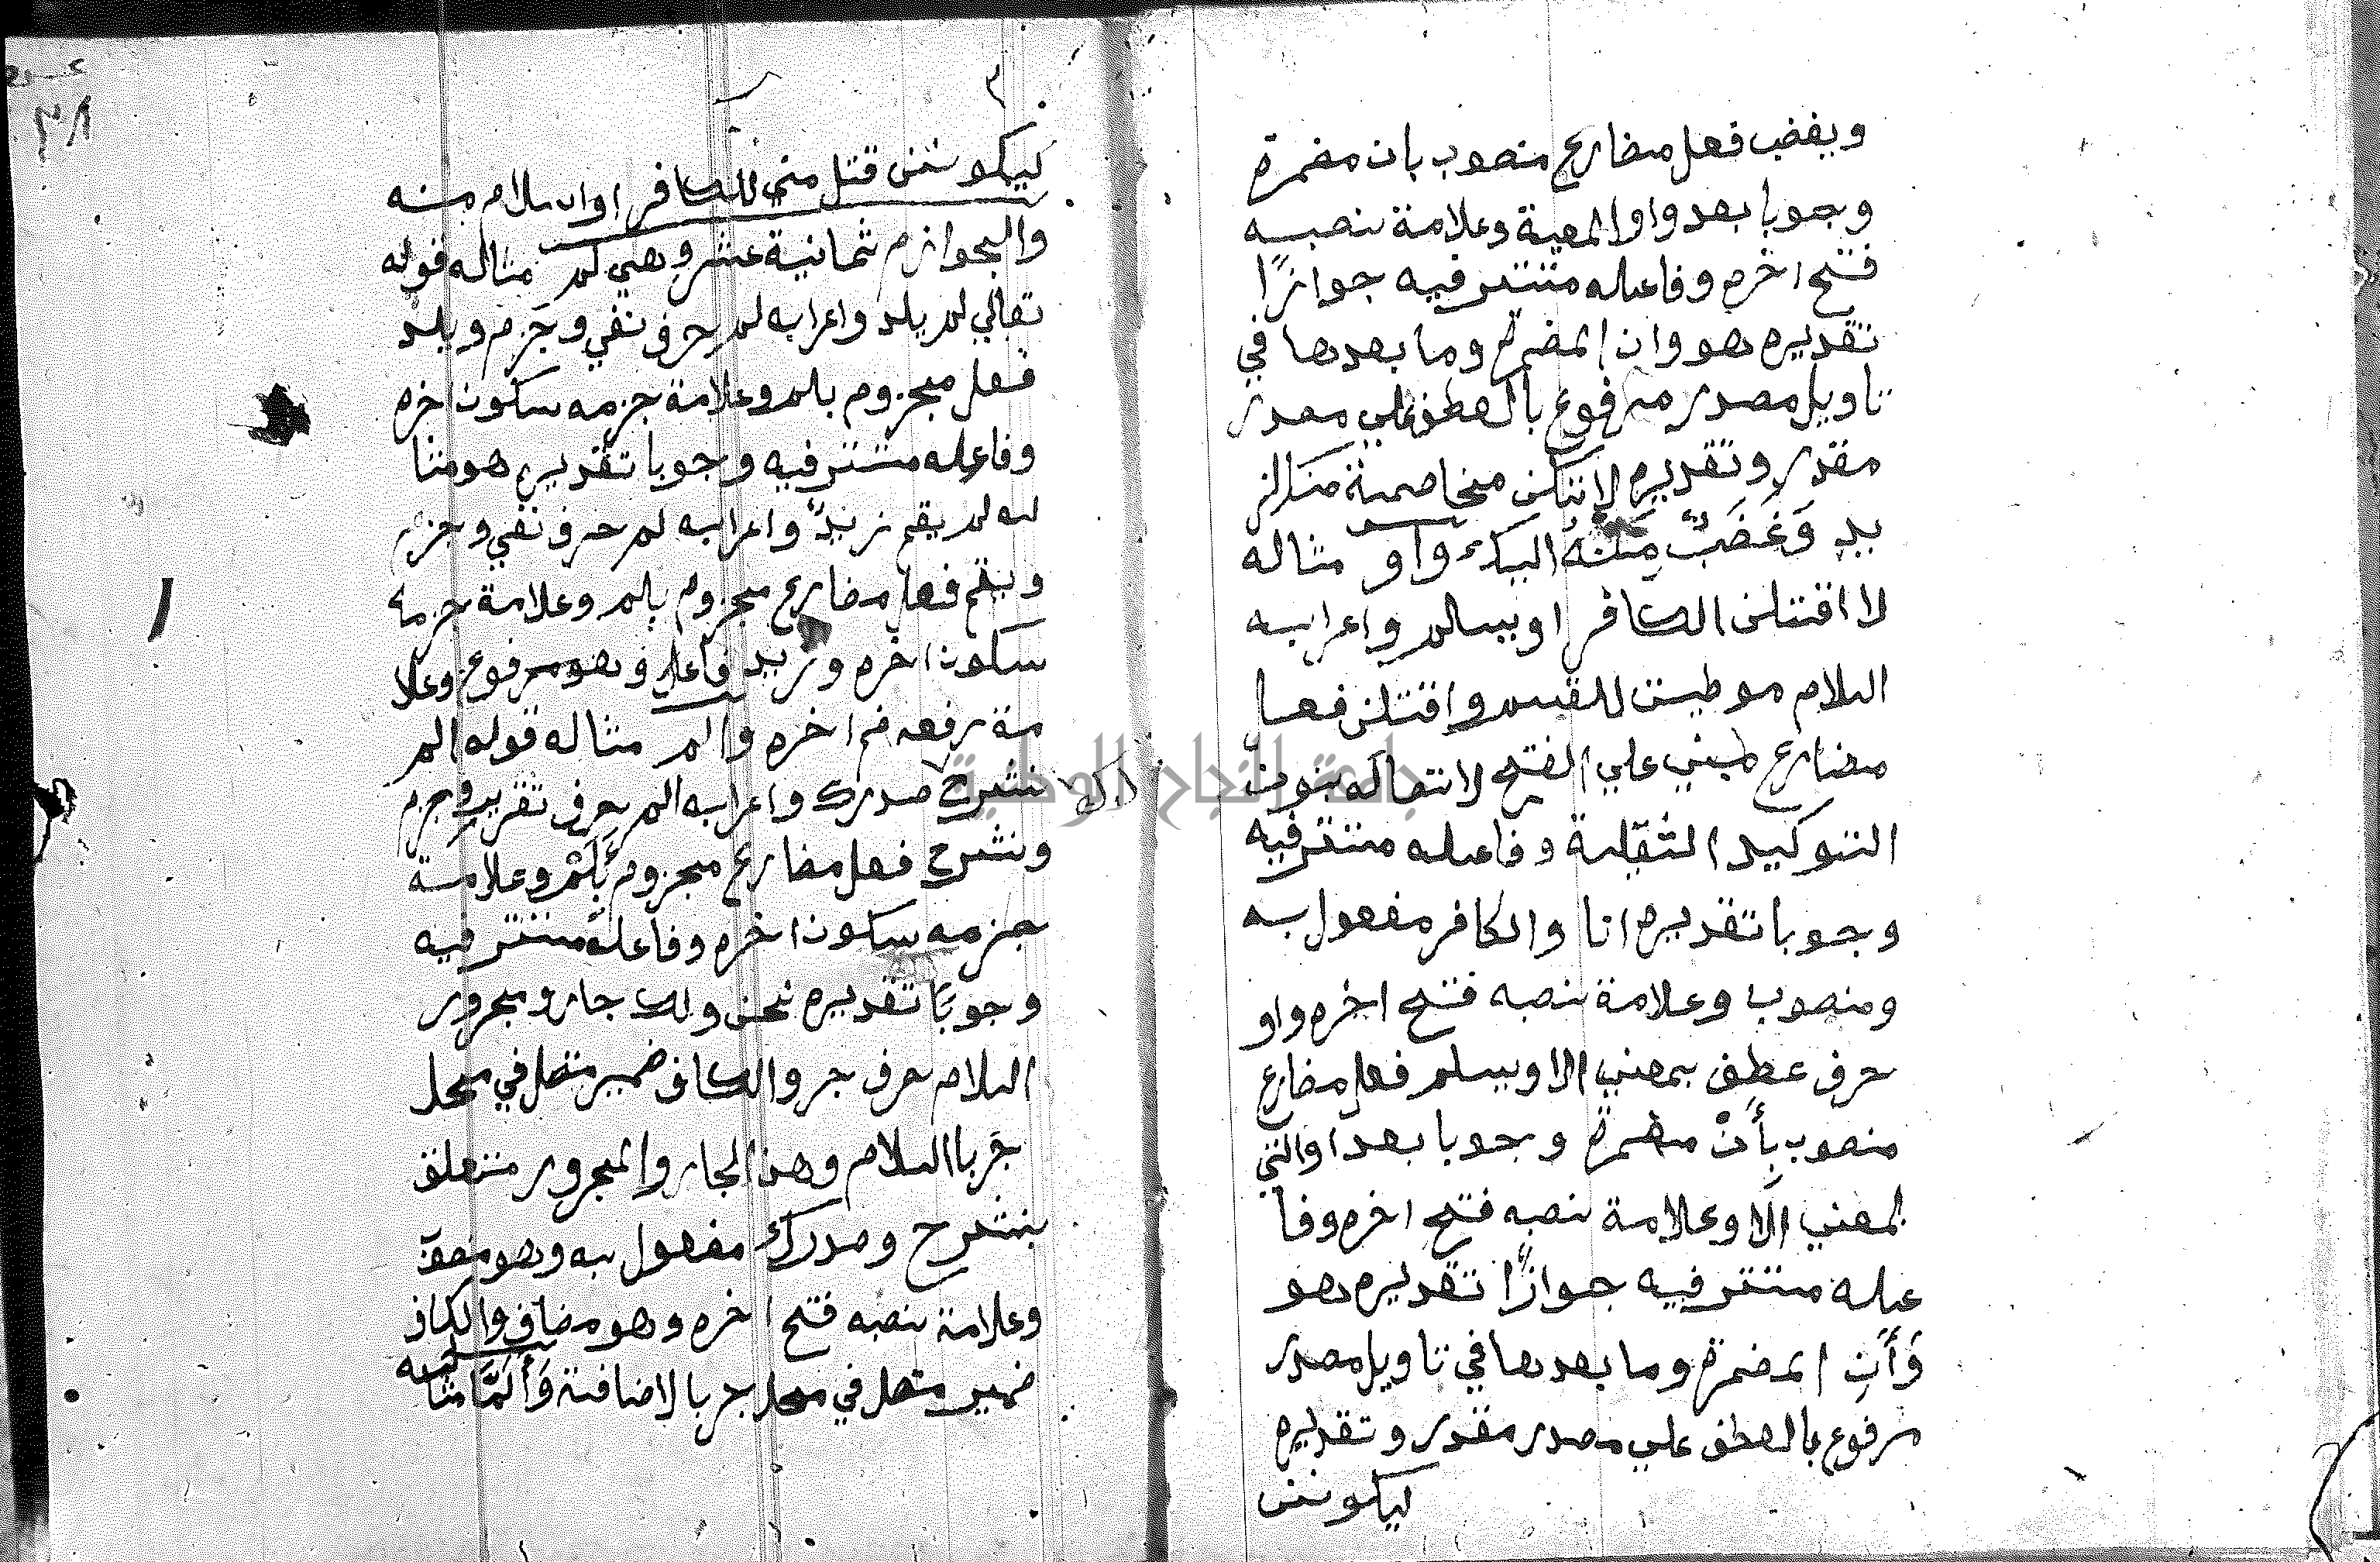 ويغضب فعل مضارع منصوب بان مضمرة
وجوبا بعد واو المعية وعلامة نصبه
فتح اخره وفاعله مستتر فيه جوازًا
تقديره هو وان المضمرة وما بعدها في
تاويل مصدر مرفوع بالعطف علي مصدر
مقدر وتقديره لا تكن مخاصمة منك لز
يد وَغَضَبٌ مِنْهُ اليك واو مثاله
لا اقتلن الكافر او يسلم واعرابه
اللام موطيت للقسم واقتلن فعل
مضارع مبني علي الفتح لاتصاله بنون
التوكيد الثقيلة وفاعله مستتر فيه
وجوبا تقديره انا والكافر مفعول به
ومنصوب وعلامة نصبه فتح اخره واو
حرف عطف بمعني الا ويسلم فعل مضارع
منصوب بِأَنْ مضمرة وجوبا بعد او التي
بمعني الا وعلامة نصبه فتح اخره وفا
عله مستتر فيه جوازًا تقديره هو
وَأَن المضمرة وما بعدها في تاويل مصدر
مرفوع بالعطف علي مصدر مقدر وتقديره
ليكونن
٣
ليكونن قتل مني للكافر او اسلام منه
والجوازم ثمانية عشر وهي لم مثاله قوله
تعالي لم يلد واعرابه لم حرف نفي وجَزم ويلد
فعل مجزوم بلم وعلامة جزمه سكون اخره
وفاعله مستتر فيه وجوبا تقديره هو مثا
له لم يقم زيدٌ واعرابه لم حرف نفي وجزم
ويقم فعل مضارع مجزوم بلم وعلامة جزمه
سكون اخره وزيد فاعل وهو مرفوع وعلا
مة رفعه ضم اخره والم مثاله قوله الم
نشرح لك صدرك واعرابه الم حرف تقرير وجزم
ونشرح فعل مضارع مجزوم بِأَلَمْ وعلامة
جزمه سكون اخره وفاعله مستتر فيه
وجوبًا تقديره نحن ولك جار ومجرور
اللام حرف جر والكاف ضمير متصل في محل
جر باللام وهذا الجار والمجرور متعلق
بنشرح وصدرك مفعول به وهو منصوب
وعلامة نصبه فتح اخره وهو مضاف والكاف
ضمير متصل في محل جر بالاضافة وَأَلَمَّا مثاله
جامعة النجاح الوطنية